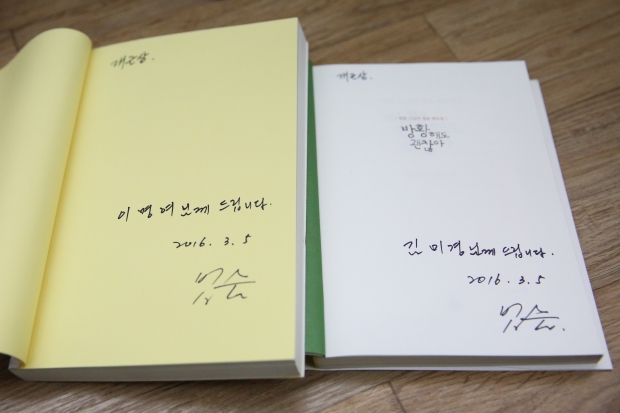 개근상.
이명여님께 드립니다.
2016. 3. 5
법순
개근상.
방황해도
괜찮아
김미경님께 드립니다.
2016. 3. 5
법순.